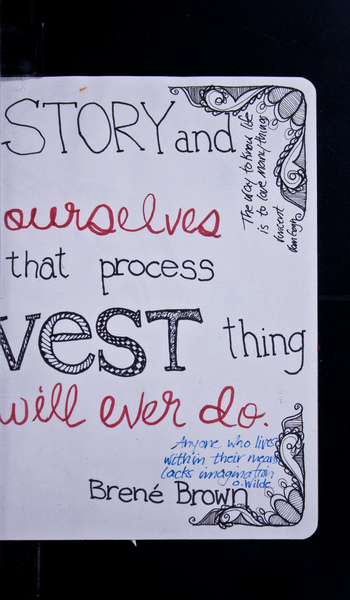 STORY and
ourselves
that process
vesT thing
will ever do.
Brené Brown
The way to know life
is to love many things
Vincent
Van Gogh
Anyone who lives
within their means
lacks imagination
O. Wilde